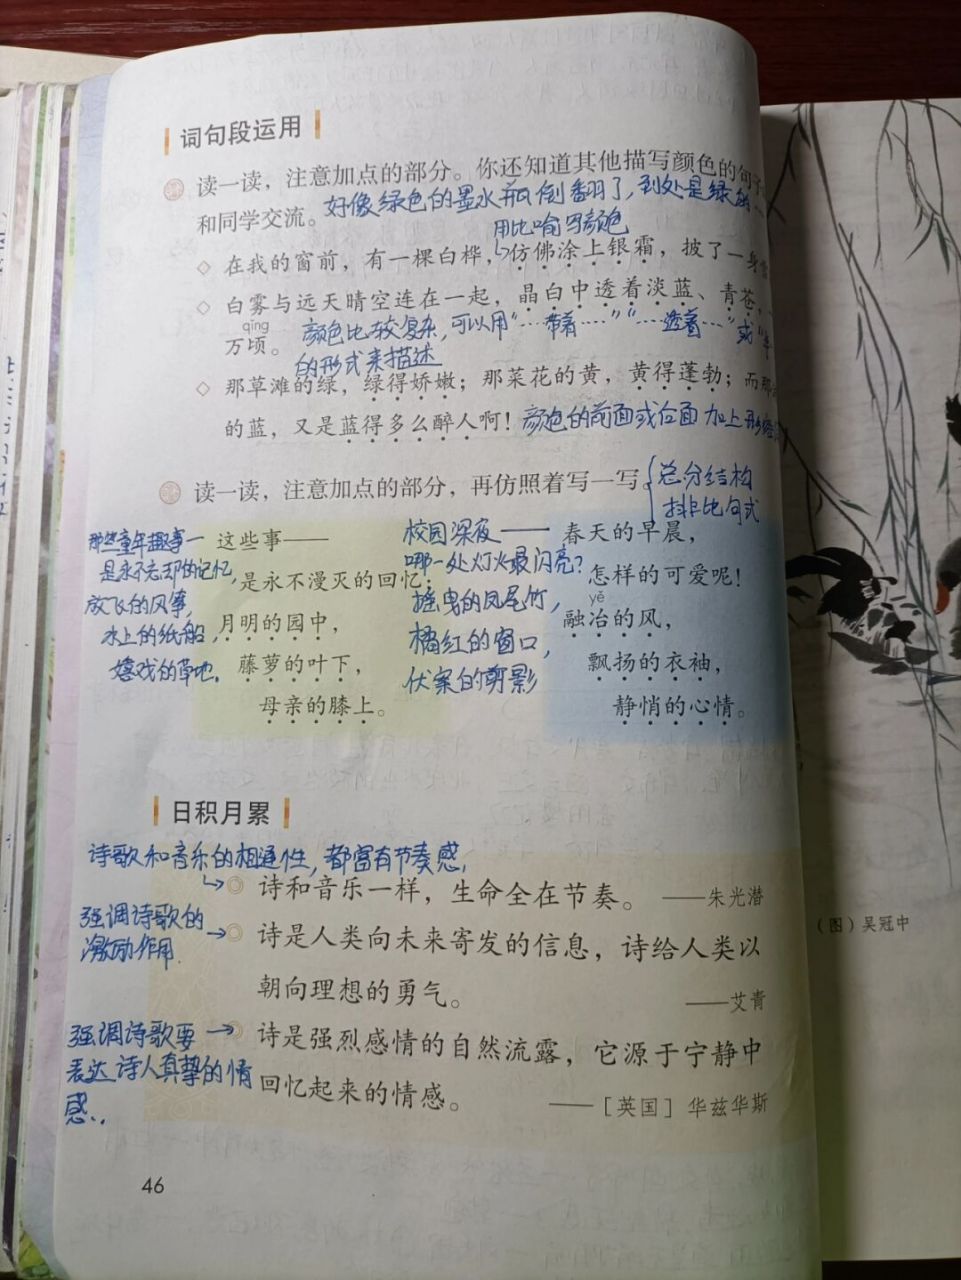 词句段运用
读一读，注意加点的部分。你还知道其他描写颜色的句子
和同学交流。好像绿色的墨水瓶倒翻了，到处是绿的
用比喻写颜色
在我的窗前，有一棵白桦，仿佛涂上银霜，披了一身
白雾与远天晴空连在一起，晶白中透着淡蓝、青苍，
qǐng
万顷。颜色比较复杂，可以用“……带着……”“……透着……”或
的形式来描述
那草滩的绿，绿得娇嫩；那菜花的黄，黄得蓬勃；而那
的蓝，又是蓝得多么醉人啊！颜色的前面或后面加上形容
读一读，注意加点的部分，再仿照着写一写。
总分结构
排比句式
那些童年趣事—
是永不忘却的记忆，
放飞的风筝，
水上的纸船，
嬉戏的草地。
这些事——
是永不漫灭的回忆：
月明的园中，
藤萝的叶下，
母亲的膝上。
校园深夜——
哪一处灯火最闪亮？
摇曳的凤尾竹，
橘红的窗口，
伏案的剪影
春天的早晨，
怎样的可爱呢！
yě
融冶的风，
飘扬的衣袖，
静悄的心情。
日积月累
诗歌和音乐的相通性，都富有节奏感，
诗和音乐一样，生命全在节奏。 ——朱光潜
强调诗歌的
激励作用.
诗是人类向未来寄发的信息，诗给人类以
朝向理想的勇气。 ——艾青
强调诗歌要
表达诗人真挚的情
感..
诗是强烈感情的自然流露，它源于宁静中
回忆起来的情感。 ——［英国］华兹华斯
46
（图）吴冠中